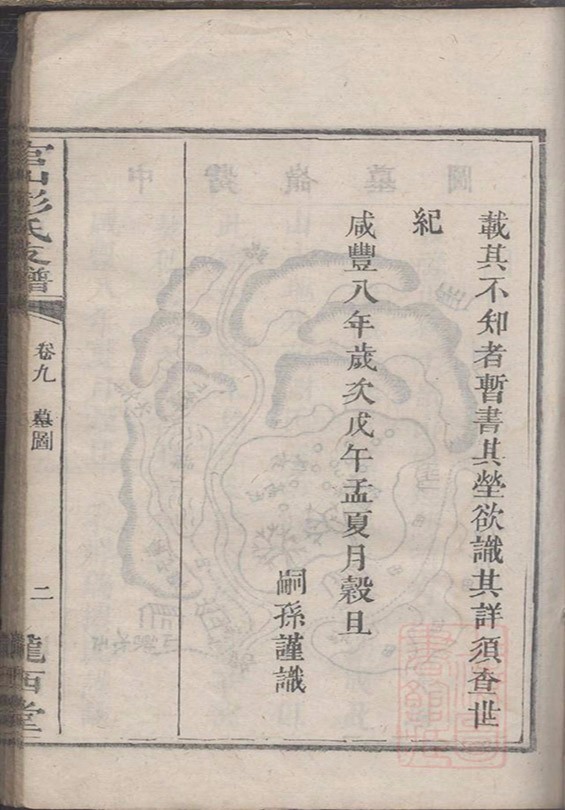 載其不知者暫書其塋欲識其詳須查世
紀
咸豐八年歲次戊午孟夏月穀旦
嗣孫謹識
官山彭氏支譜
卷九
墓圖
二
隴西堂